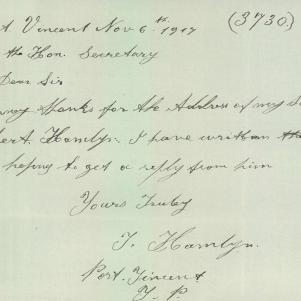 t Vincent Nov 6th 1917 (3730)
the Hon. Secretary
Dear Sir
many thanks for the Address of my S
bert Hamlyn. I have written the
hoping to get a reply from him
Yours Truly
T. Hamlyn.
Port. Vincent
Y. P.